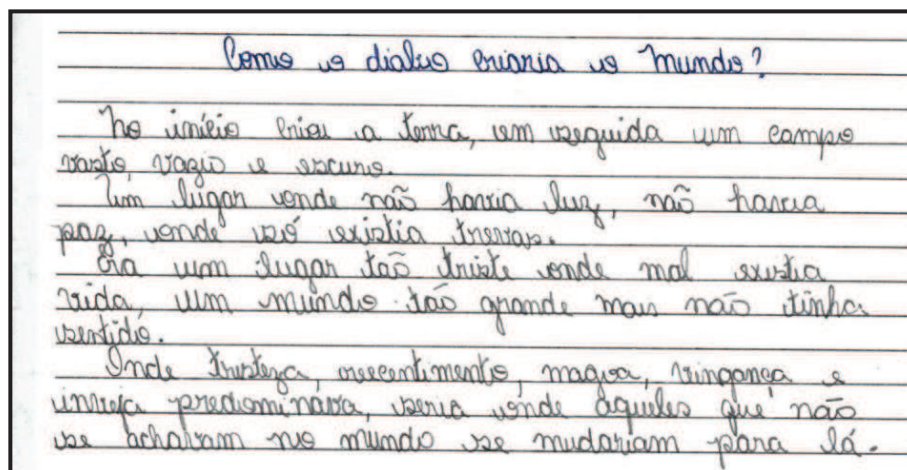 Como o diabo criaria o mundo?
No início criou a terra, em seguida um campo
vasto, vazio e escuro.
Um lugar onde não havia luz, não havia
paz, onde só existia trevas.
Era um lugar tão triste onde mal existia
vida, um mundo tão grande mais não tinha
sentido.
Onde tristeza, reecentimento, magoa, vingança e
inveja predominava, seria onde àqueles que não
se achavam no mundo se mudariam para lá.